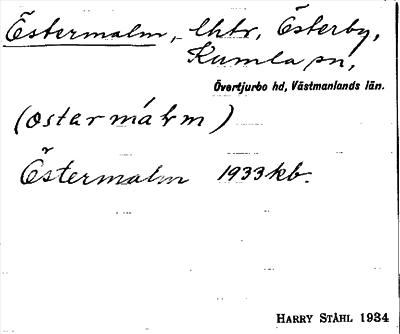 Östermalm, lhtr, Österby,
Kumla sn,
Övertjurbo hd, Västmanlands län.
(östarmálm)
Östermalm 1933 kb.
HARRY STÅHL 1934